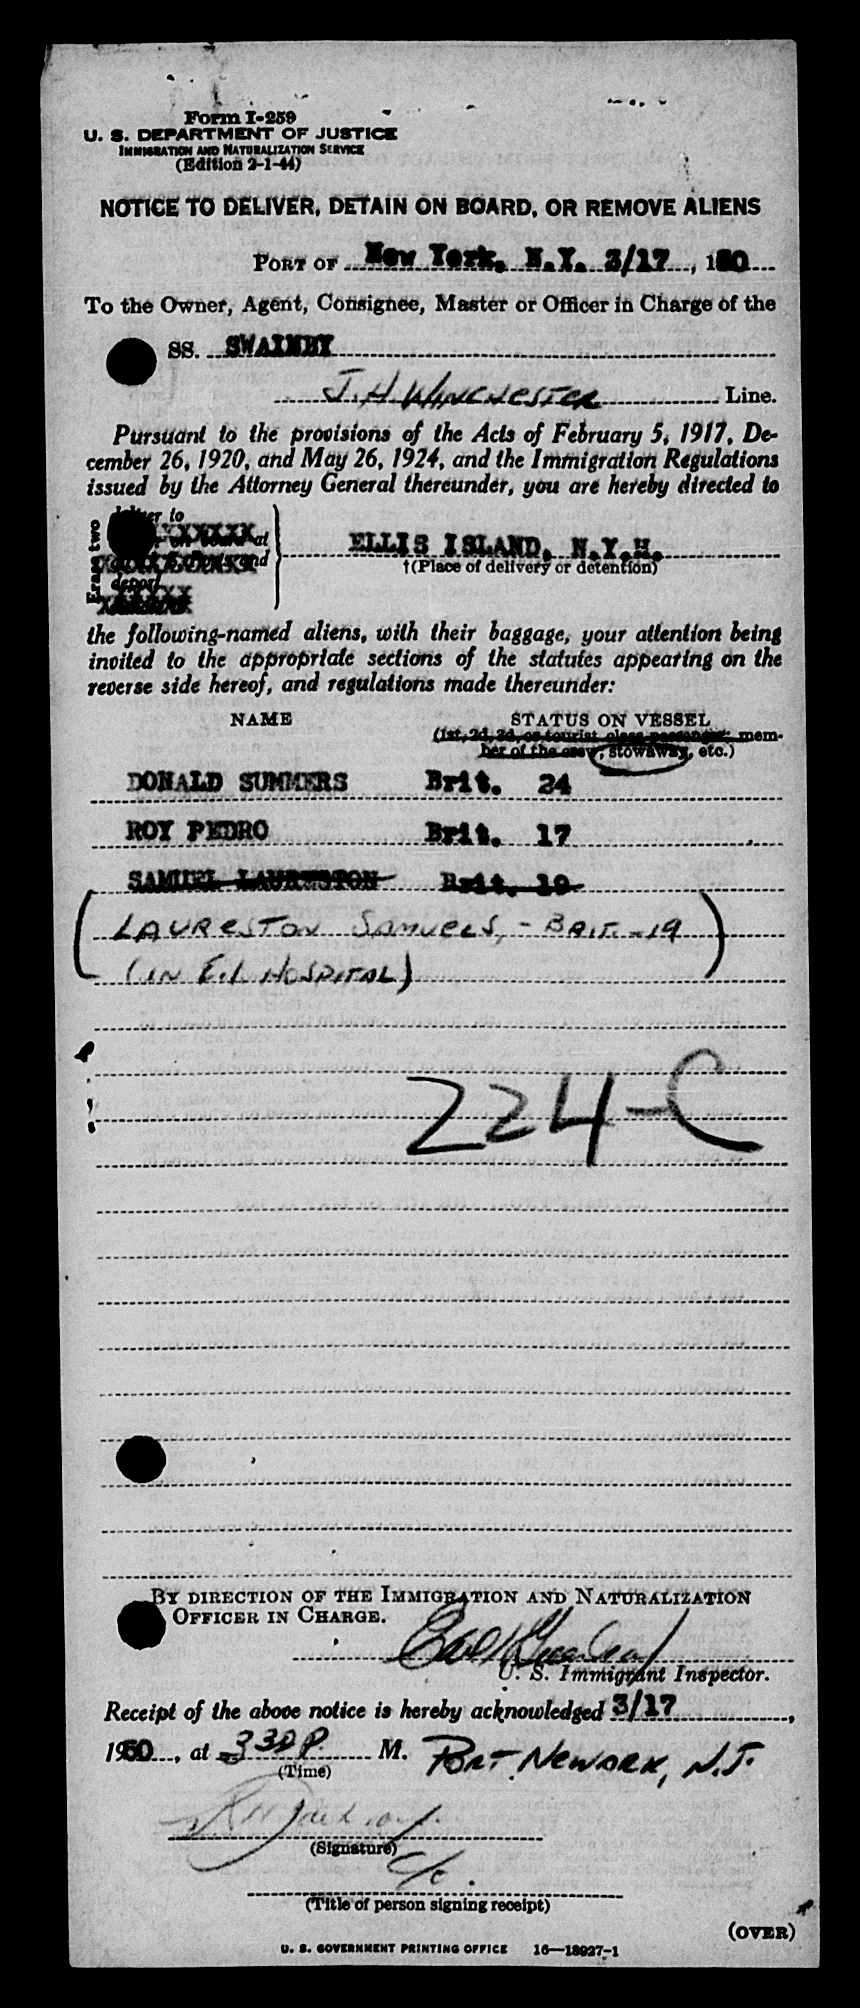 Form I-259
U. S. DEPARTMENT OF JUSTICE
IMMIGRATION AND NATURALIZATION SERVICE
(Edition 2-1-44)
NOTICE TO DELIVER, DETAIN ON BOARD, OR REMOVE ALIENS
PORT OF New York, N.Y. 3/17, 1950
To the Owner, Agent, Consignee, Master or Officer in Charge of the
SS. SWAINBY
J. H WINCHESTER Line.
Pursuant to the provisions of the Acts of February 5, 1917, De-
cember 26, 1920, and May 26, 1924, and the Immigration Regulations
issued by the Attorney General thereunder, you are hereby directed to
Erase two
deliver to
ELLIS ISLAND, N.Y.H.
†(Place of delivery or detention)
deport
the following-named aliens, with their baggage, your attention being
invited to the appropriate sections of the statutes appearing on the
reverse side hereof, and regulations made thereunder:
NAME STATUS ON VESSEL
(1st, 2d, 3d, or tourist class passenger, mem-
ber of the crew, stowaway, etc.)
DONALD SUMMERS Brit. 24
ROY PEDRO Brit. 17
SAMUEL LAURESTON Brit. 19
(LAURESTON SAMUELS, - BRIT. - 19)
(IN E.I. HOSPITAL)
224-C
BY DIRECTION OF THE IMMIGRATION AND NATURALIZATION
OFFICER IN CHARGE.
U. S. Immigrant Inspector.
Receipt of the above notice is hereby acknowledged 3/17,
1950, at 330 P. M. PORT NEWARK, N.J.
(Time)
(Signature)
(Title of person signing receipt)
(OVER)
U. S. GOVERNMENT PRINTING OFFICE 16—18927-1